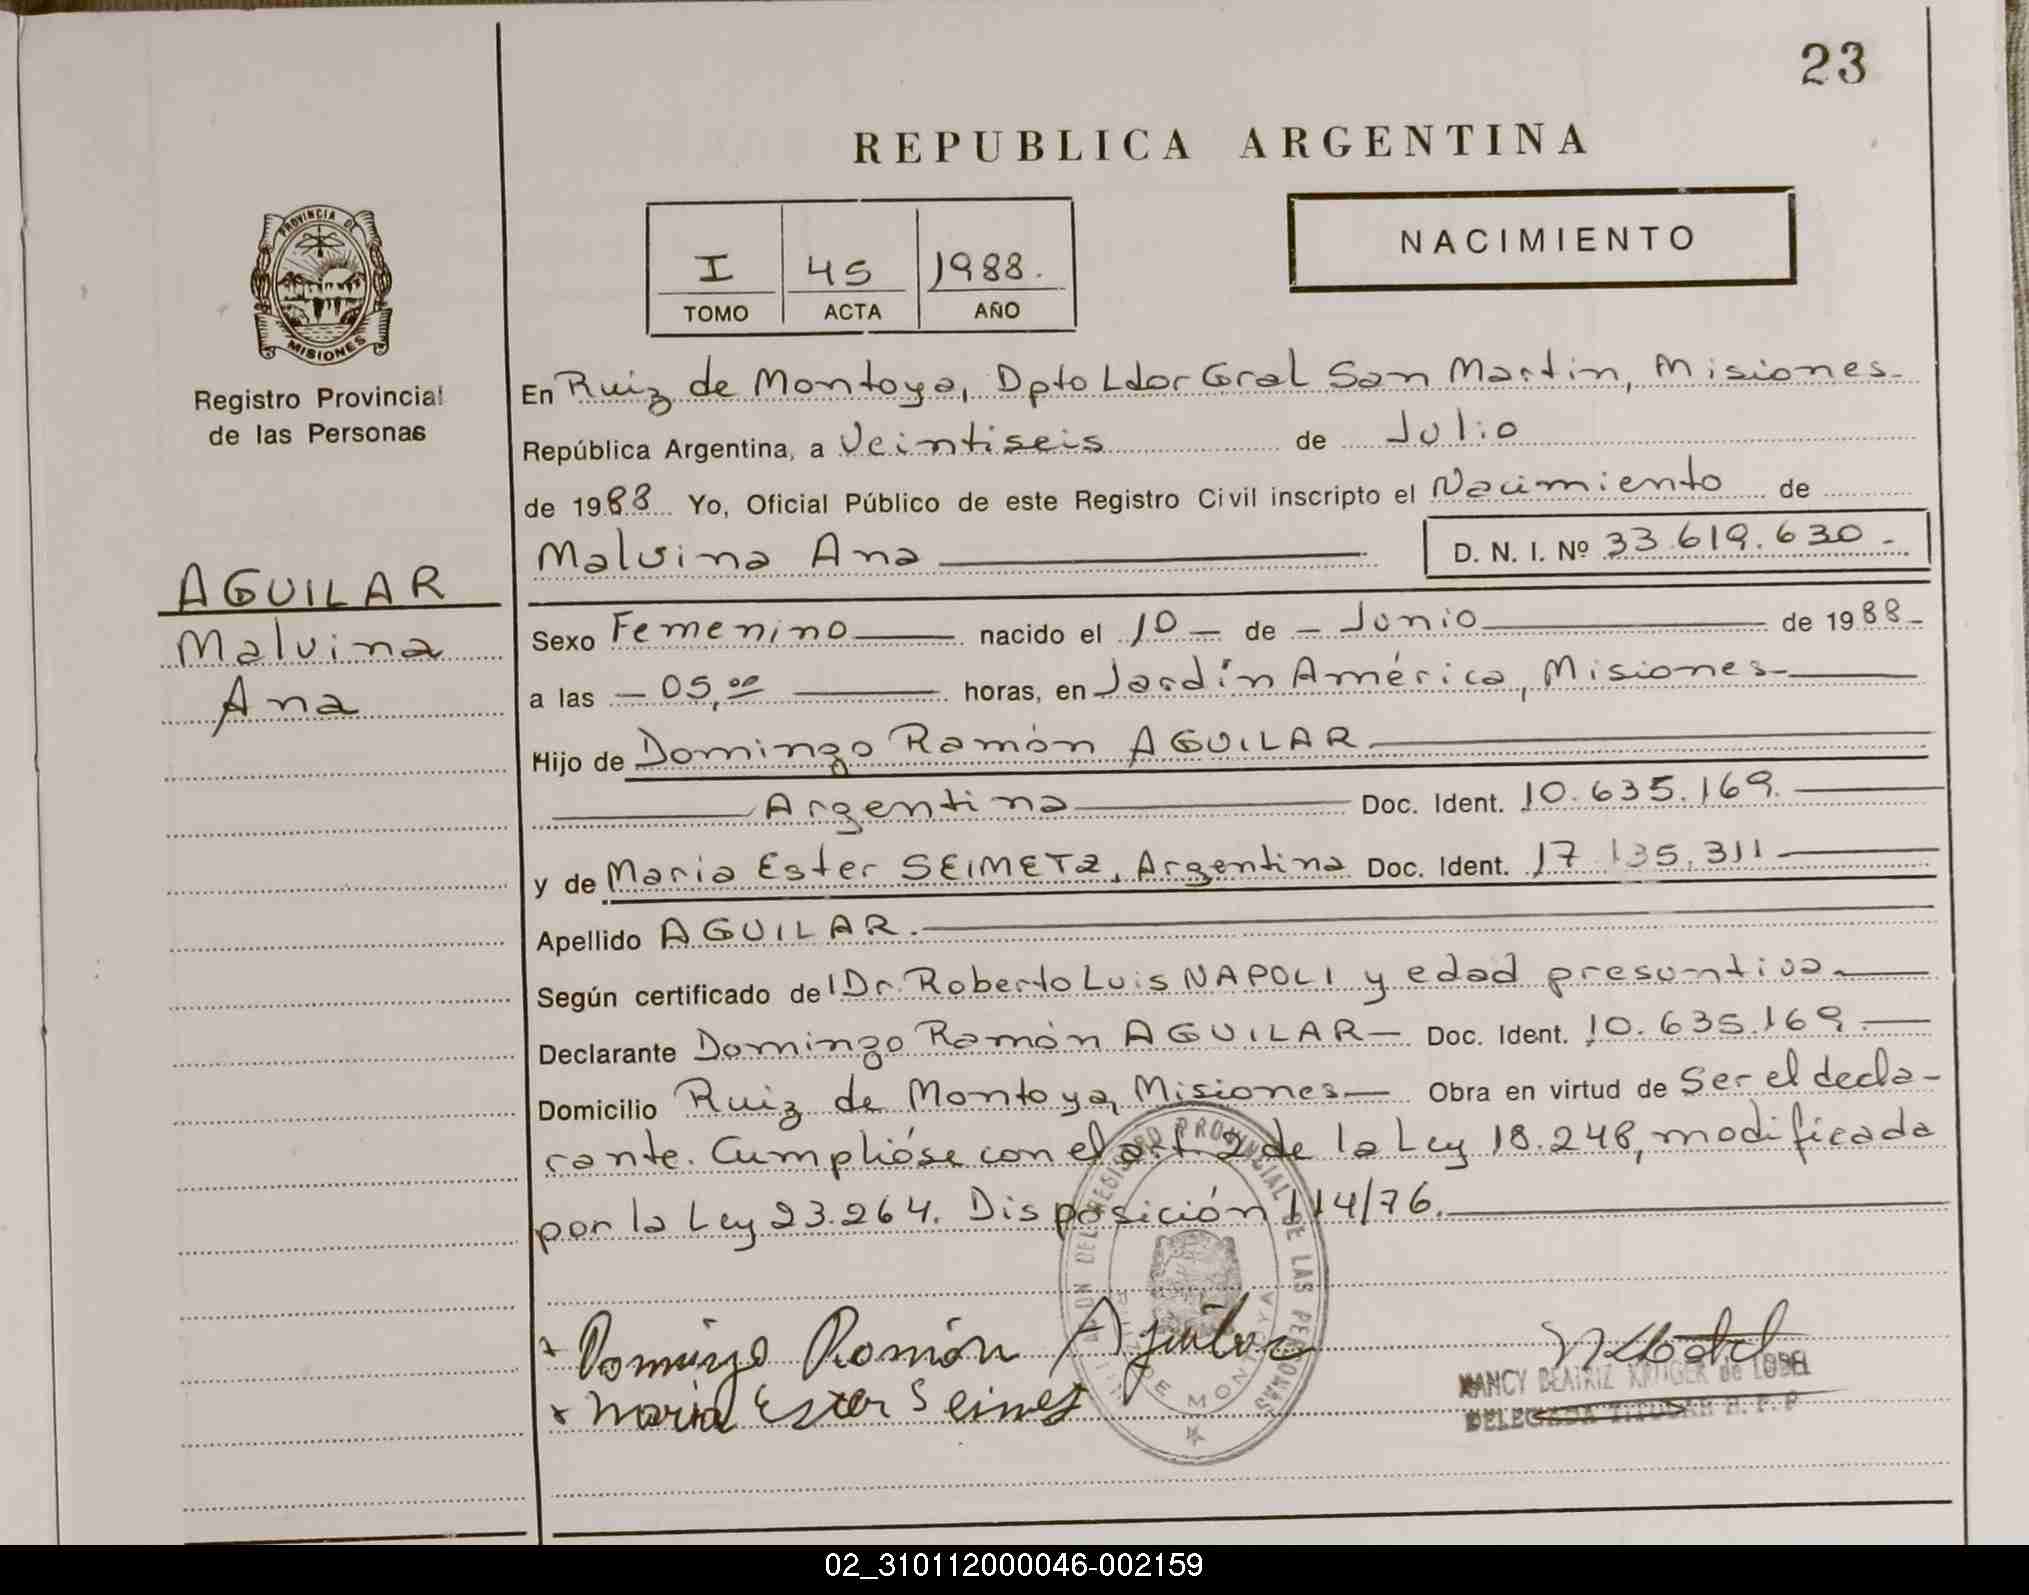 23
REPUBLICA ARGENTINA
PROVINCIA DE
MISIONES
Registro Provincial
de las Personas
I 45 1988.
TOMO ACTA AÑO
NACIMIENTO
En Ruiz de Montoya, Dpto Ldor Gral San Martin, Misiones
República Argentina, a Veintiseis de Julio
de 1988 Yo, Oficial Público de este Registro Civil inscripto el Nacimiento de
Malvina Ana D. N. I. Nº 33.619.630.-
AGUILAR
Malvina
Ana
Sexo Femenino nacido el 10 - de - Junio de 1988-
a las - 05,00 horas, en Jardín América, Misiones
Hijo de Domingo Ramón AGUILAR
Argentina Doc. Ident. 10.635.169.
y de Maria Ester SEIMETZ, Argentina Doc. Ident. 17.135.311
Apellido AGUILAR.
Según certificado del Dr. Roberto Luis NAPOLI y edad presuntiva
Declarante Domingo Ramón AGUILAR- Doc. Ident. 10.635.169.
Domicilio Ruiz de Montoya, Misiones- Obra en virtud de Ser el decla-
rante. Cumplióse con el art. 2 de la Ley 18.248, modificada
por la Ley 23.264. Disposición 114/76.
Domingo Ramón Aguilar
Maria Ester Seimet
REGISTRO PROVINCIAL DE LAS PERSONAS
DE MONTOYA
NANCY BEATRIZ KRUGER de LOBEL
DELEGADA TITULAR R. P. P
02_310112000046-002159